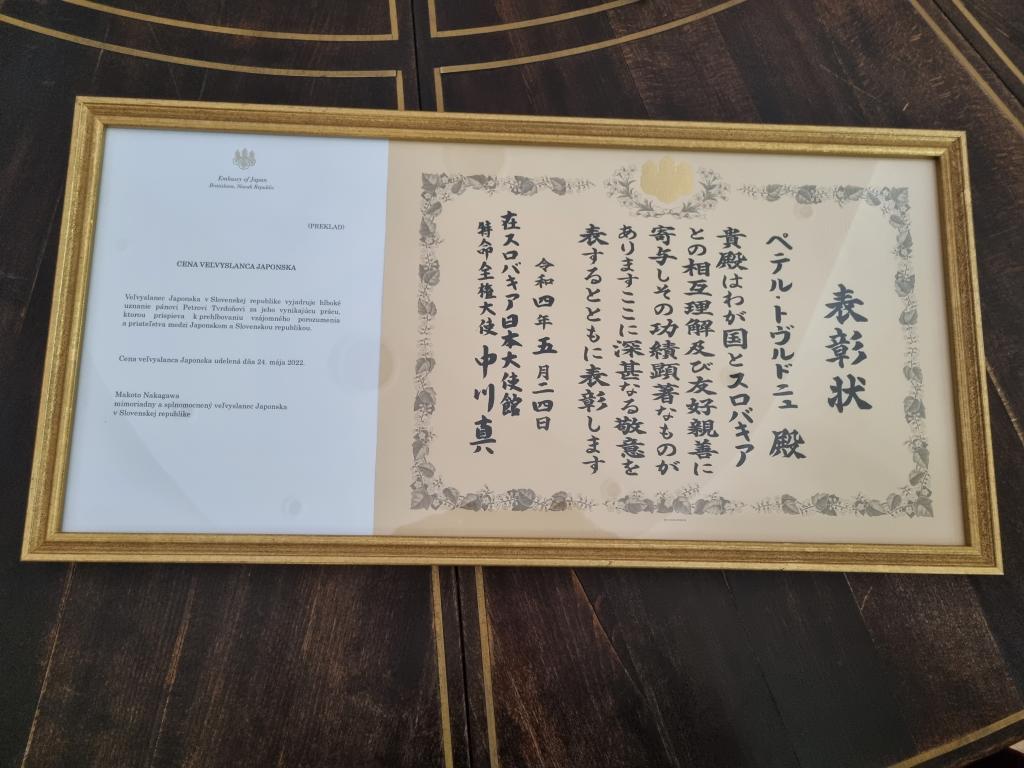 Embassy of Japan
Bratislava, Slovak Republic
(PREKLAD)
CENA VEĽVYSLANCA JAPONSKA
Veľvyslanec Japonska v Slovenskej republike vyjadruje hlboké
uznanie pánovi Petrovi Tvrdoňovi za jeho vynikajúcu prácu,
ktorou prispieva k prehlbovaniu vzájomného porozumenia
a priateľstva medzi Japonskom a Slovenskou republikou.
Cena veľvyslanca Japonska udelená dňa 24. mája 2022.
Makoto Nakagawa
mimoriadny a splnomocnený veľvyslanec Japonska
v Slovenskej republike
表彰状
ペテル・トヴルドニュ 殿
貴殿はわが国とスロバキア
との相互理解及び友好親善に
寄与しその功績顕著なものが
ありますここに深甚なる敬意を
表するとともに表彰します
令和四年五月二四日
在スロバキア日本大使館
特命全権大使 中川真